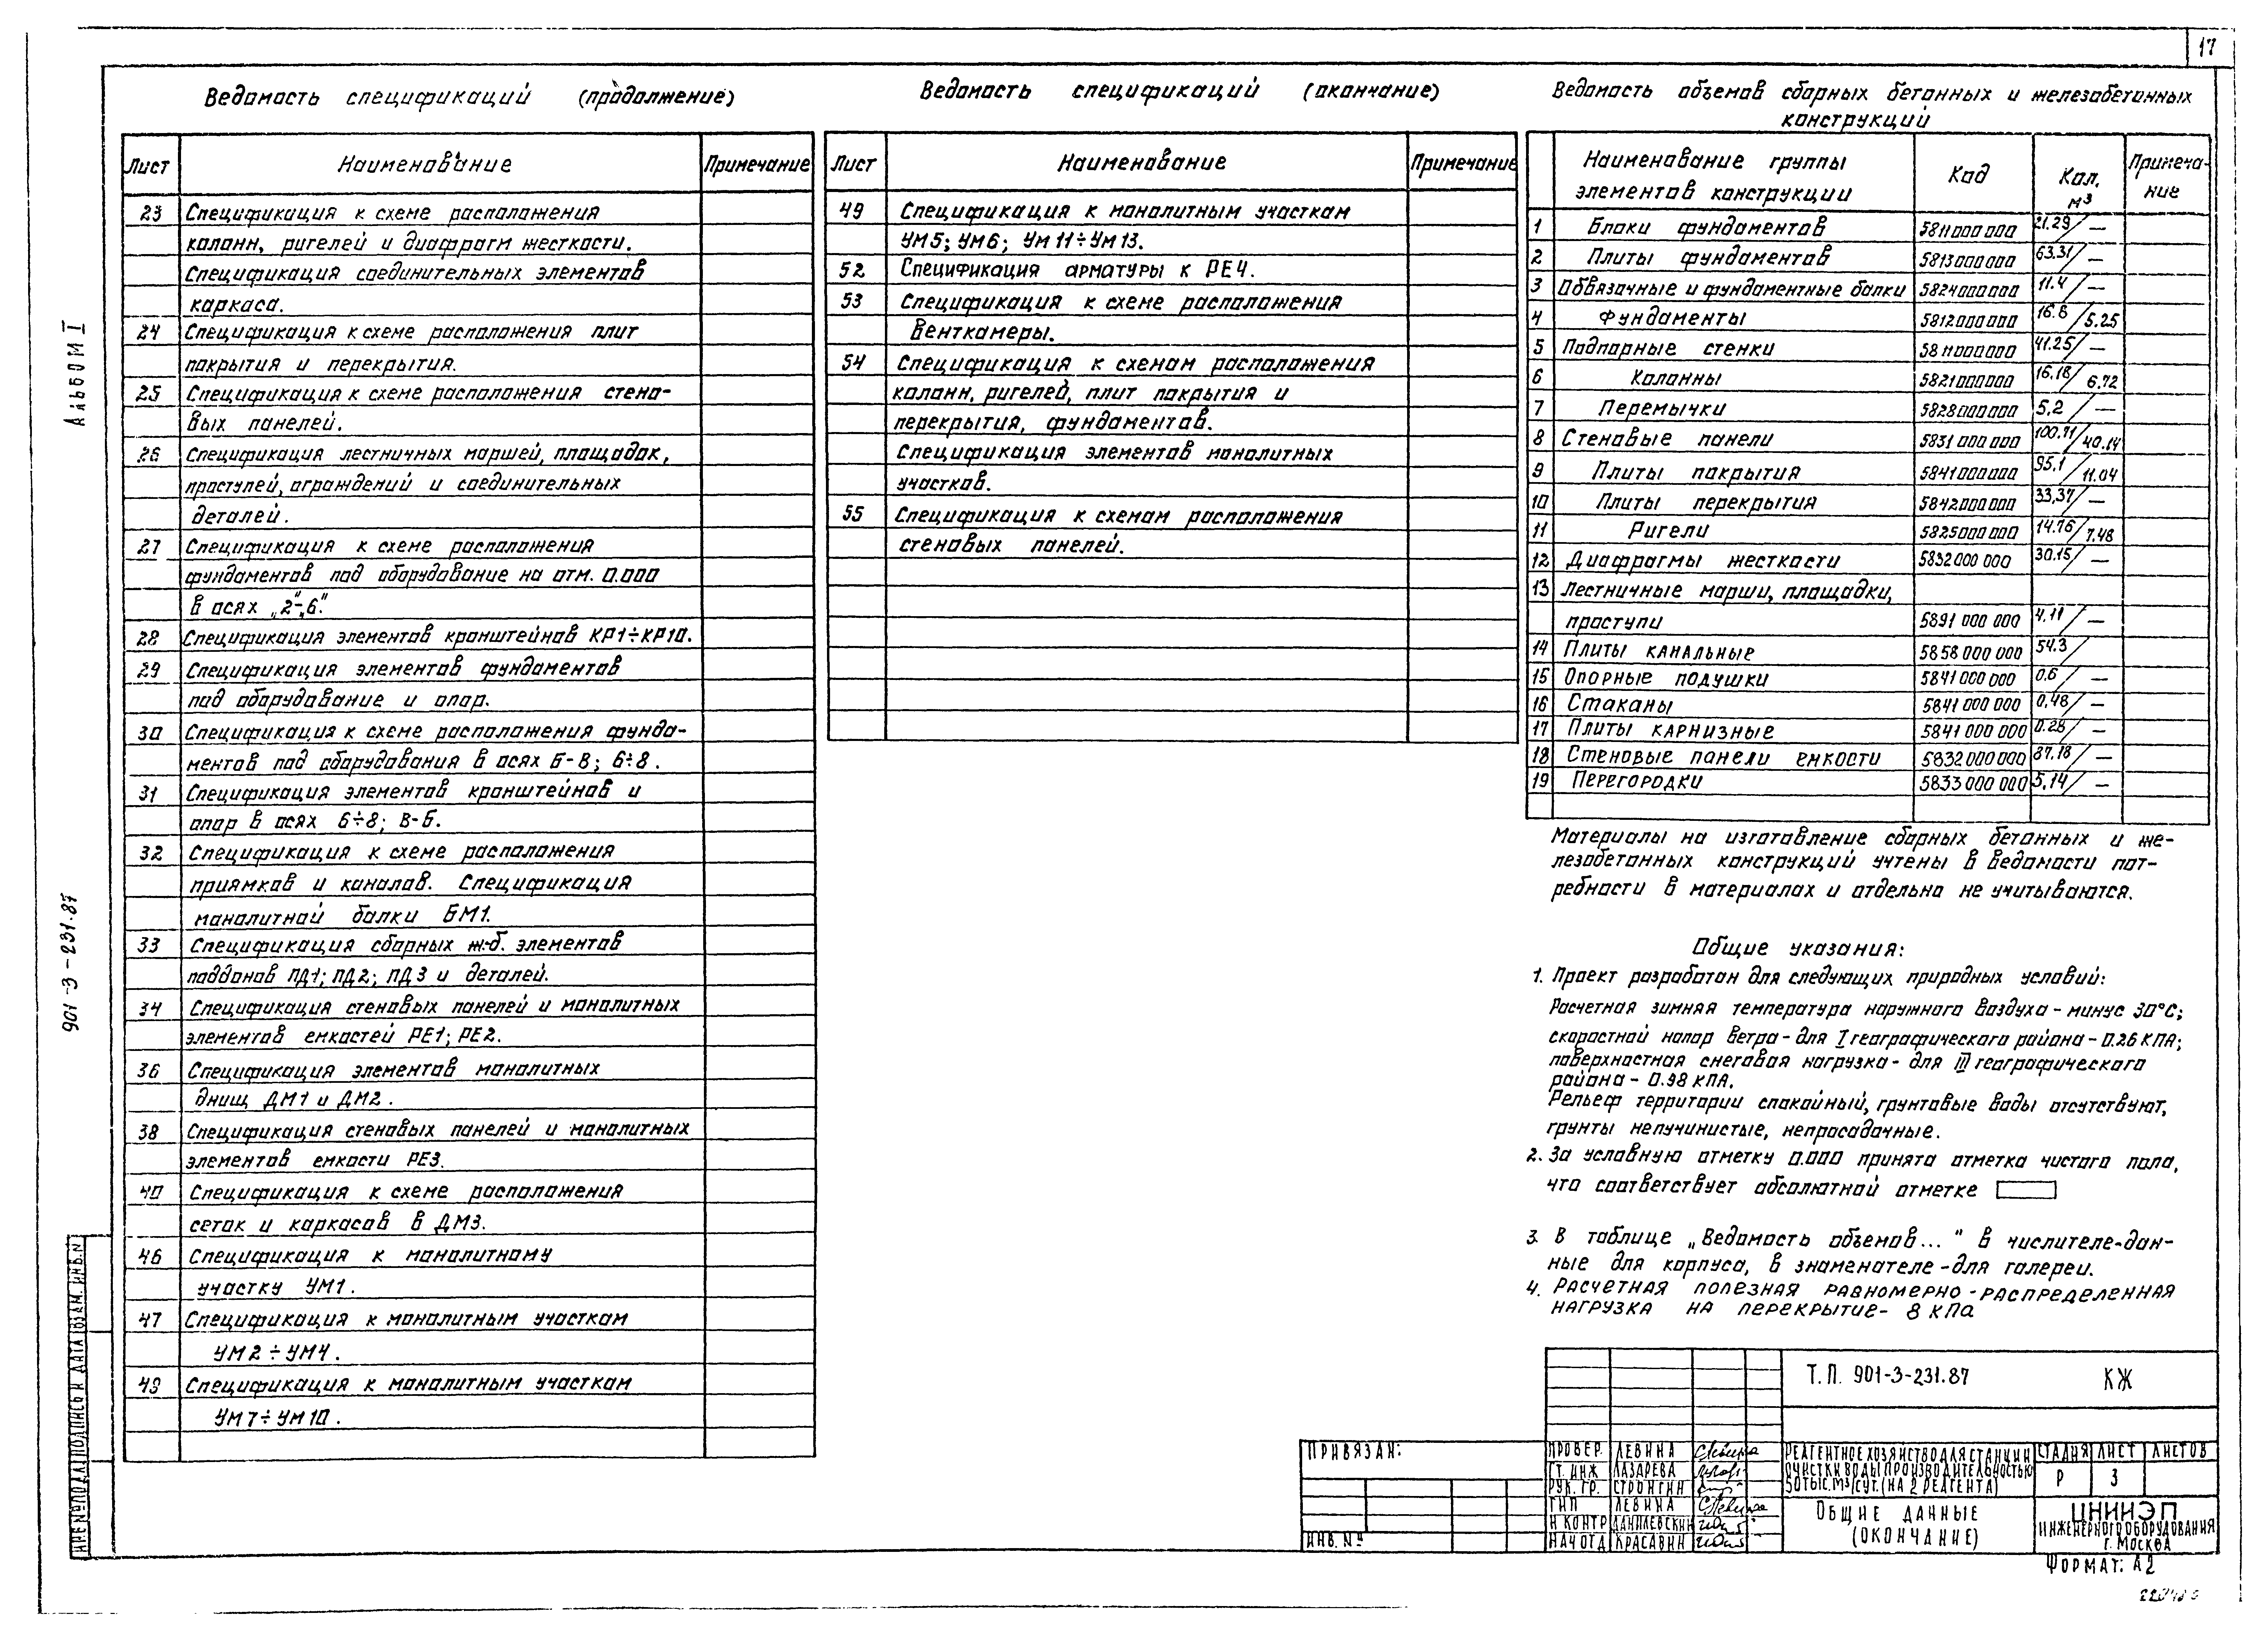 17
Ведомость спецификаций (продолжение)
Лист Наименование Примечание
23 Спецификация к схеме расположения
колонн, ригелей и диафрагм жесткости.
Спецификация соединительных элементов
каркаса.
24 Спецификация к схеме расположения плит
покрытия и перекрытия.
25 Спецификация к схеме расположения стено-
вых панелей.
26 Спецификация лестничных маршей, площадок,
проступей, ограждений и соединительных
деталей.
27 Спецификация к схеме расположения
фундаментов под оборудование на отм. 0.000
в осях „2"÷„6".
28 Спецификация элементов кронштейнов КР1÷КР10.
29 Спецификация элементов фундаментов
под оборудование и опор.
30 Спецификация к схеме расположения фунда-
ментов под оборудования в осях Б-В; 6÷8.
31 Спецификация элементов кронштейнов и
опор в осях 6÷8; В-Б.
32 Спецификация к схеме расположения
приямков и каналов. Спецификация
монолитной балки БМ1.
33 Спецификация сборных ж-б. элементов
поддонов ПД1; ПД2; ПД3 и деталей.
34 Спецификация стеновых панелей и монолитных
элементов емкостей РЕ1; РЕ2.
36 Спецификация элементов монолитных
днищ ДМ1 и ДМ2.
38 Спецификация стеновых панелей и монолитных
элементов емкости РЕ3.
40 Спецификация к схеме расположения
сеток и каркасов в ДМ3.
46 Спецификация к монолитному
участку УМ1.
47 Спецификация к монолитным участкам
УМ2÷УМ4.
49 Спецификация к монолитным участкам
УМ7÷УМ10.
Ведомость спецификаций (окончание)
Лист Наименование Примечание
49 Спецификация к монолитным участкам
УМ5; УМ6; УМ11÷УМ13.
52 Спецификация арматуры к РЕ4.
53 Спецификация к схеме расположения
венткамеры.
54 Спецификация к схемам расположения
колонн, ригелей, плит покрытия и
перекрытия, фундаментов.
Спецификация элементов монолитных
участков.
55 Спецификация к схемам расположения
стеновых панелей.
Ведомость объемов сборных бетонных и железобетонных
конструкций
Наименование группы элементов конструкции Код Кол. м³ Примечание
1 Блоки фундаментов 5811000000 21.29/—
2 Плиты фундаментов 5813000000 63.31/—
3 Обвязочные и фундаментные балки 5824000000 11.4/—
4 Фундаменты 5812000000 16.8/5.25
5 Подпорные стенки 5811000000 41.25/—
6 Колонны 5821000000 16.18/6.72
7 Перемычки 5828000000 5.2/—
8 Стеновые панели 5831000000 100.71/40.14
9 Плиты покрытия 5841000000 95.1/11.04
10 Плиты перекрытия 5842000000 33,37/—
11 Ригели 5825000000 14.76/7.48
12 Диафрагмы жесткости 5832000000 30.15/—
13 Лестничные марши, площадки,
проступи 5891 000 000 4.11/—
14 Плиты канальные 5858 000 000 54.3/
15 Опорные подушки 5841 000 000 0.6/—
16 Стаканы 5841 000 000 0,48/—
17 Плиты карнизные 5841 000 000 0.28/—
18 Стеновые панели емкости 5832 000 000 87.18/—
19 Перегородки 5833 000 000 5,14/—
Материалы на изготовление сборных бетонных и же-
лезобетонных конструкций учтены в ведомости пот-
ребности в материалах и отдельно не учитываются.
Общие указания:
1. Проект разработан для следующих природных условий:
Расчетная зимняя температура наружного воздуха - минус 30°С;
скоростной напор ветра - для I географического района - 0.26 КПА;
поверхностная снеговая нагрузка - для III географического
района - 0.98 КПА.
Рельеф территории спокойный, грунтовые воды отсутствуют,
грунты непучинистые, непросадочные.
2. За условную отметку 0.000 принята отметка чистого пола,
что соответствует абсолютной отметке
3. В таблице „Ведомость объемов..." в числителе-дан-
ные для корпуса, в знаменателе-для галереи.
4. Расчетная полезная равномерно-распределенная
нагрузка на перекрытие- 8 кПа
Т.П. 901-3-231.87 КЖ
Привязан:
Инв. №
Провер. Левина
Ст. инж Лазарева
Рук. гр. Стронгин
ГИП Левина
Н контр Данилевский
Нач отд Красавин
Реагентное хозяйство для станции
очистки воды производительностью
50 тыс. м³/сут. (на 2 реагента)
Стадия Лист Листов
Р 3
Общие данные
(окончание)
ЦНИИЭП
инженерного оборудования
г. Москва
Формат: А2
Альбом I
901-3-231.87
Инв № подл Подпись и дата Взам. инв. N